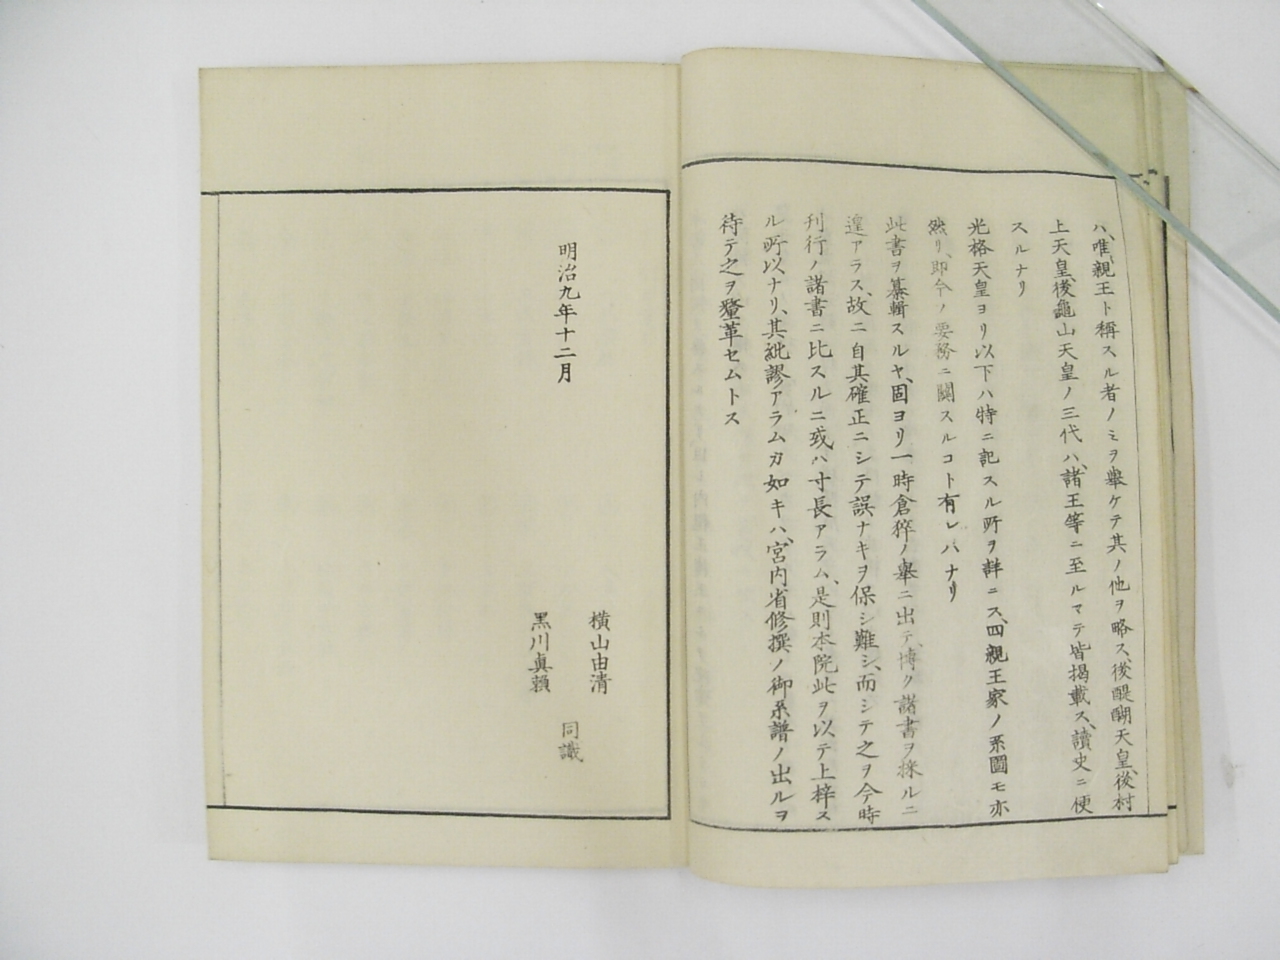 ハ、唯、親王ト稱スル者ノミヲ擧ケテ其ノ他ヲ略ス、後醍醐天皇、後村
上天皇、後龜山天皇ノ三代ハ、諸王等ニ至ルマテ皆揭載ス、讀史ニ便
スルナリ
光格天皇ヨリ以下ハ特ニ記スル所ヲ詳ニス、四親王家ノ系圖モ亦
然リ、卽今ノ要務ニ關スルコト有レハナリ
此書ヲ纂輯スルヤ、固ヨリ一時倉猝ノ擧ニ出テ、博ク諸書ヲ採ルニ
遑アラス、故ニ自其確正ニシテ誤ナキヲ保シ難シ、而シテ之ヲ今時
刊行ノ諸書ニ比スルニ或ハ寸長アラム、是則本院此ヲ以テ上梓ス
ル所以ナリ、其紕謬アラムカ如キハ、宮内省修撰ノ御系譜ノ出ルヲ
待テ之ヲ釐革セムトス
明治九年十二月
橫山由淸
黑川眞賴
同識